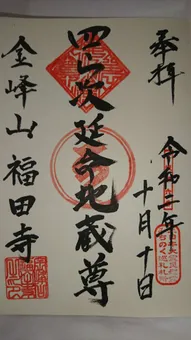 奉拝
令和二年
十月十日
延命地蔵尊
金峰山 福田寺